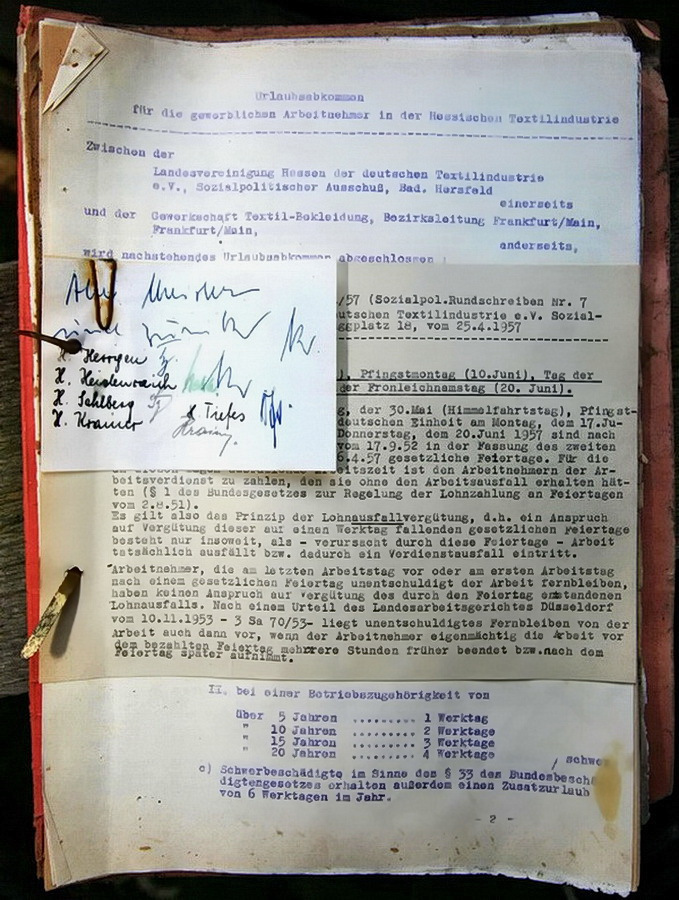 Urlaubsabkommen
für die gewerblichen Arbeitnehmer in der Hessischen Textilindustrie
Zwischen der
Landesvereinigung Hessen der deutschen Textilindustrie
e.V., Sozialpolitischer Ausschuß, Bad. Hersfeld
einerseits
und der Gewerkschaft Textil-Bekleidung, Bezirksleitung Frankfurt/Main,
Frankfurt/Main,
anderseits,
wird nachstehendes Urlaubsabkommen abgeschlossen :
H. Herrgen
H. Heidenreich
H. Sehlberg
H. Kramer
H Tiefes
/57 (Sozialpol.Rundschreiben Nr. 7
utschen Textilindustrie e.V. Sozial-
ggplatz 18, vom 25.4.1957
), Pfingstmontag (10.Juni), Tag der
der Fronleichnamstag (20. Juni).
g, der 30.Mai (Himmelfahrtstag), Pfingst-
deutschen Einheit am Montag, dem 17.Ju-
Donnerstag, dem 20.Juni 1957 sind nach
vom 17.9.52 in der Fassung des zweiten
6.4.57 gesetzliche Feiertage. Für die
itszeit ist den Arbeitnehmern der Ar-
beitsverdienst zu zahlen, den sie ohne den Arbeitsausfall erhalten hät-
ten (§ 1 des Bundesgesetzes zur Regelung der Lohnzahlung an Feiertagen
vom 2.8.51).
Es gilt also das Prinzip der Lohnausfallvergütung, d.h. ein Anspruch
auf Vergütung dieser auf einen Werktag fallenden gesetzlichen Feiertage
besteht nur insoweit, als - verursacht durch diese Feiertage - Arbeit
tatsächlich ausfällt bzw. dadurch ein Verdienstausfall eintritt.
Arbeitnehmer, die am letzten Arbeitstag vor oder am ersten Arbeitstag
nach einem gesetzlichen Feiertag unentschuldigt der Arbeit fernbleiben,
haben keinen Anspruch auf Vergütung des durch den Feiertag entstandenen
Lohnausfalls. Nach einem Urteil des Landesarbeitsgerichtes Düsseldorf
vom 10.11.1953 - 3 Sa 70/53- liegt unentschuldigtes Fernbleiben von der
Arbeit auch dann vor, wenn der Arbeitnehmer eigenmächtig die Arbeit vor
dem bezahlten Feiertag mehrere Stunden früher beendet bzw.nach dem
Feiertag später aufnimmt.
II. bei einer Betriebszugehörigkeit von
über 5 Jahren ......... 1 Werktag
" 10 Jahren ......... 2 Werktage
" 15 Jahren ......... 3 Werktage
" 20 Jahren ......... 4 Werktage
/ schwer
c) Schwerbeschädigte im Sinne des § 33 des Bundesbeschä
digtengesetzes erhalten außerdem einen Zusatzurlaub
von 6 Werktagen im Jahr.
- 2 -